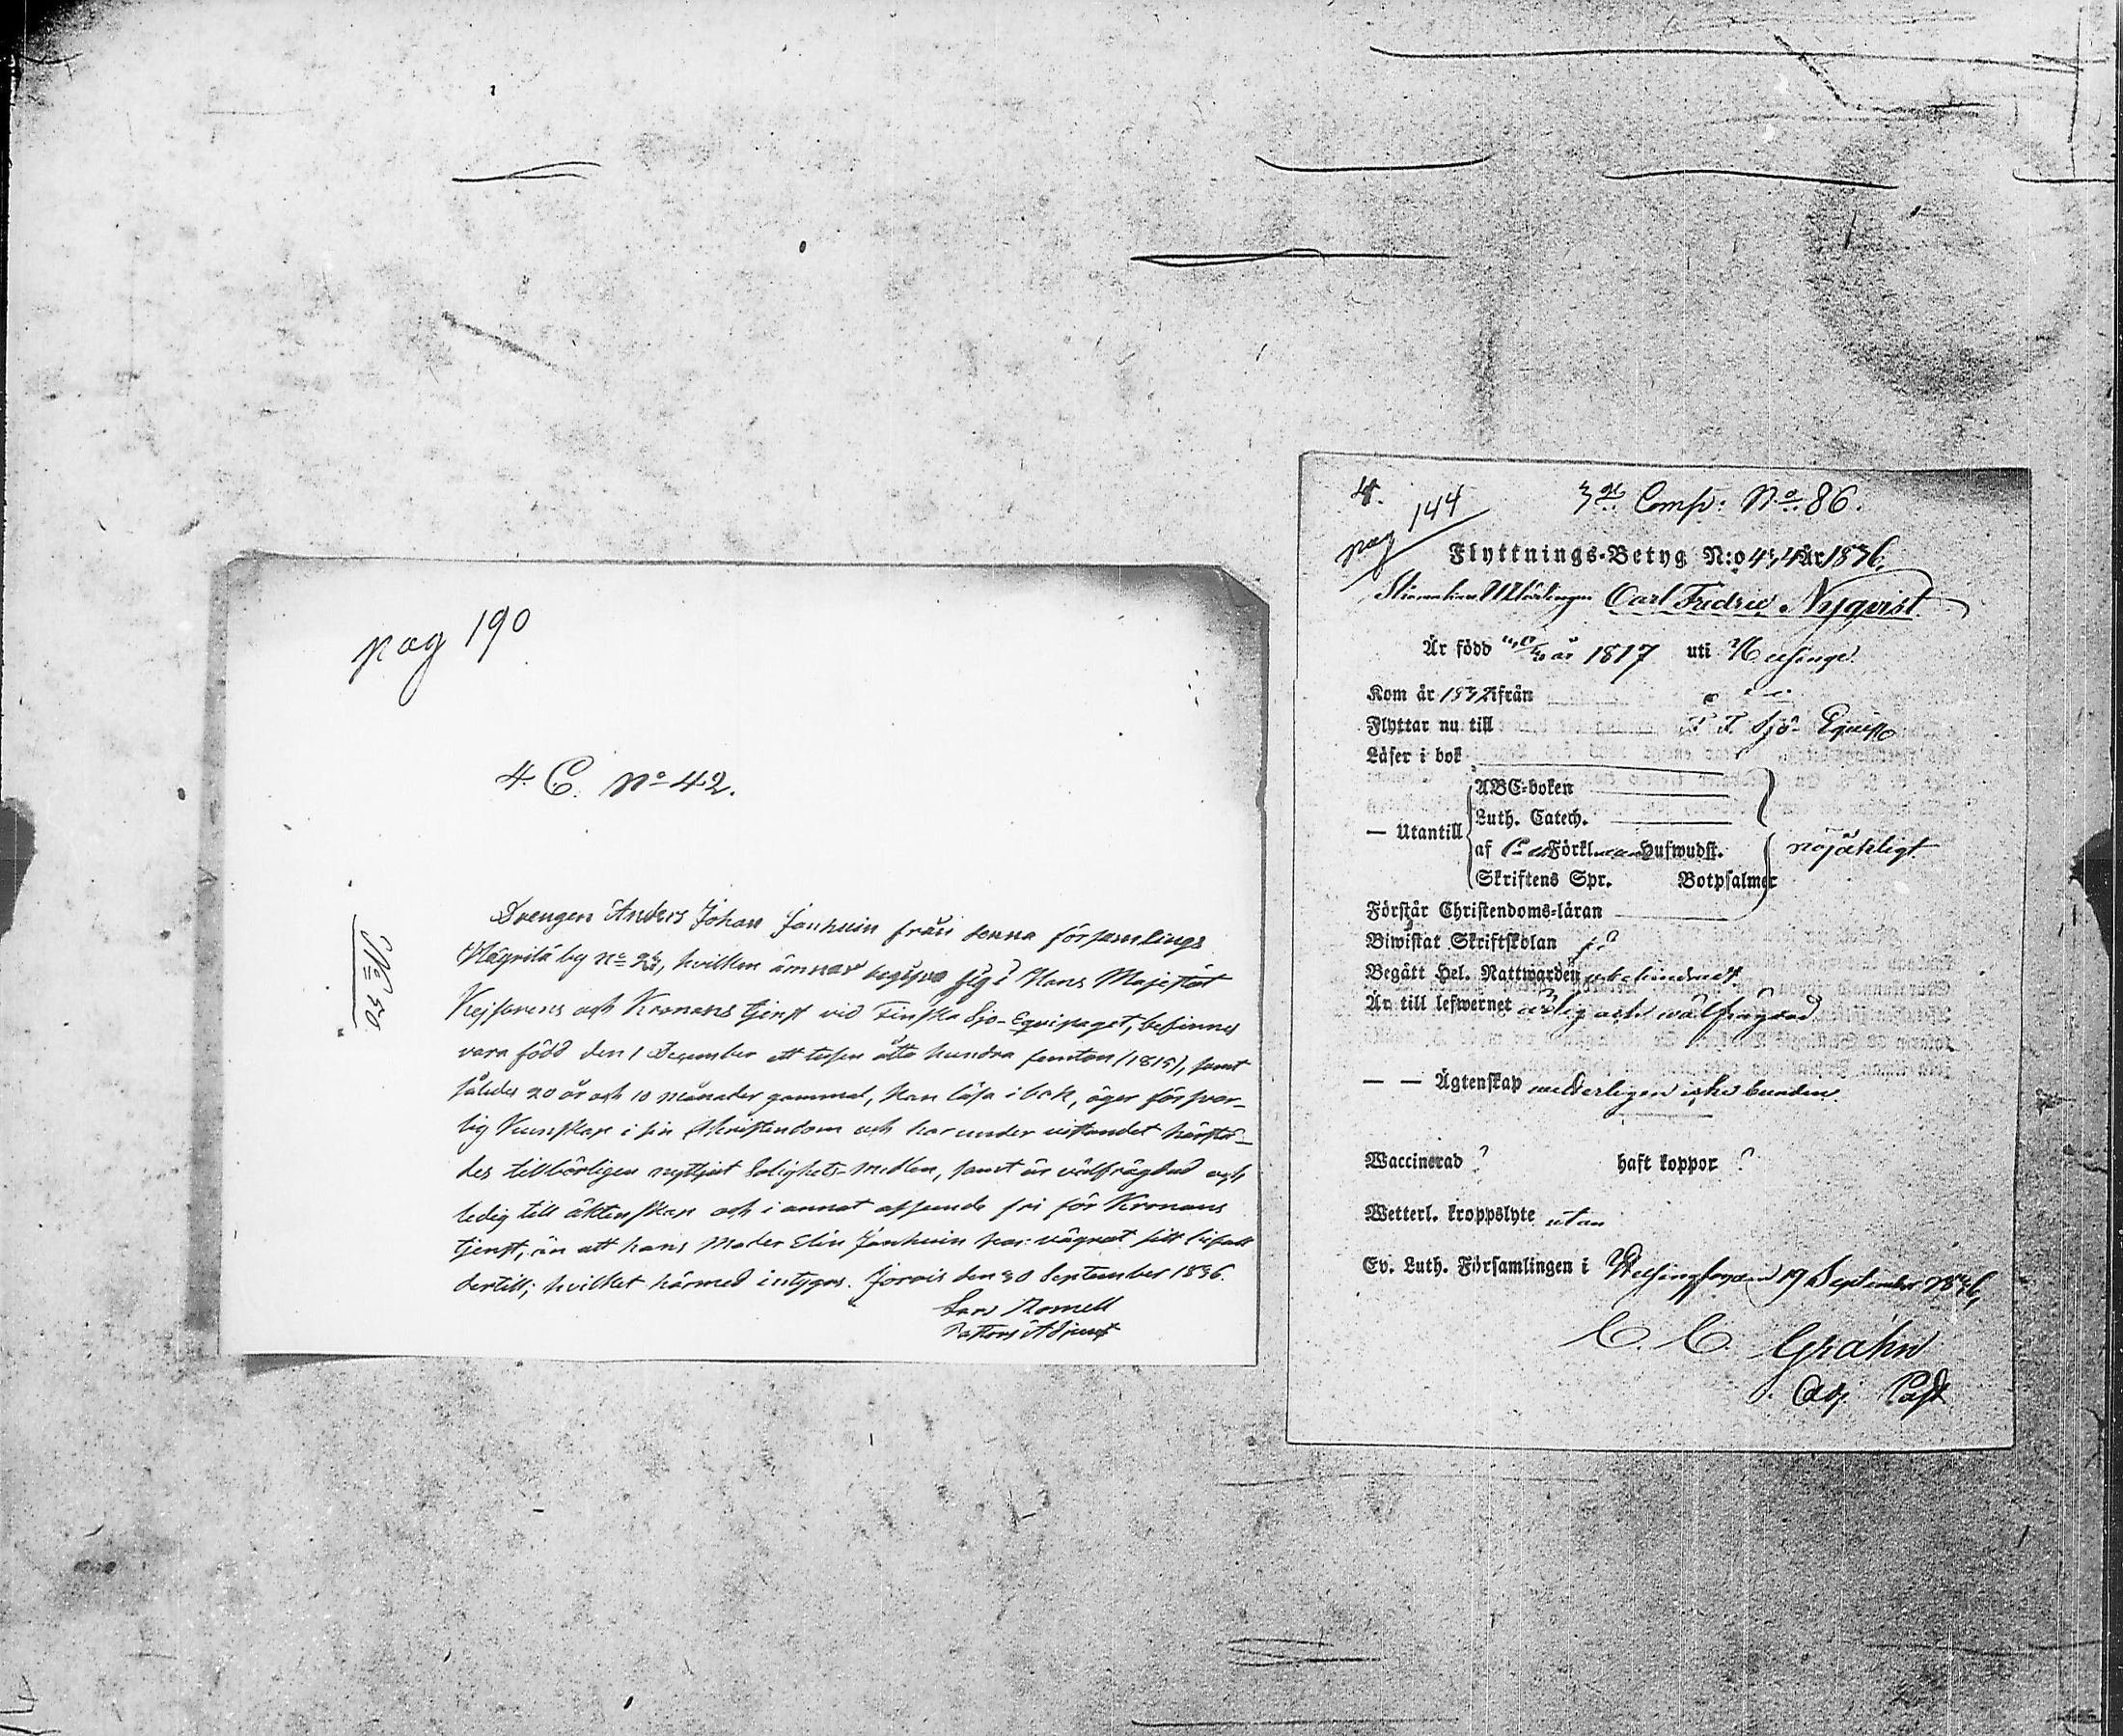 pag 190
4. C. No 42.
No 50
Drengen Anders Johan Janhuin från denna församlings
by No 24, hvilken ämnar begifva sig i Hans Majestät
Kejsarens och Kronans tjenst vid Finska Sjö-Equipaget, befinnes
vara född den 1 December ett tusen åtta hundra femton (1815), samt
således 20 år och 10 månader gammal, kan läsa i bok, äger försvar-
lig Kunskap i sin Christendom och har under vistandet härstä-
des tillbörligen nyttjat Salighets-medlen, samt är välfrägdad och
ledig till äktenskap och i annat afseende fri för Kronans
tjenst, än att hans Moder Elin Janhuin har vägrat sitt bifall
dertill; hvilket härmed intygas. Jorois den 30 September 1836.
Lars
Pastors Adjunct
4.
pag 144
3de Comp: No. 86.
Flyttnings-Betyg N:o 44 År 1836.
Carl Fredric Nyqvist.
Är född år 1817 uti Helsinge.
Kom år ifrån
Flyttar nu till Sjö-Equip
Läser i bok
ABC-boken
Luth. Catech.
— Utantill
af Förkl. Hufwudst.
nöjaktligt
Skriftens Spr. Botpsalmer
Förstår Christendoms-läran
Biwistat Skriftskolan ja
Begått Hel. Nattwarden obehindradt
Är till lefwernet ärlig och wälfrägdad
— — Ägtenskap wetterligen icke bunden.
Waccinerad ? haft koppor ?
Wetterl. kroppslyte utan
Ev. Luth. Församlingen i Helsingfors den 19 September 1836.
C. C. Grahn
Adj. Past